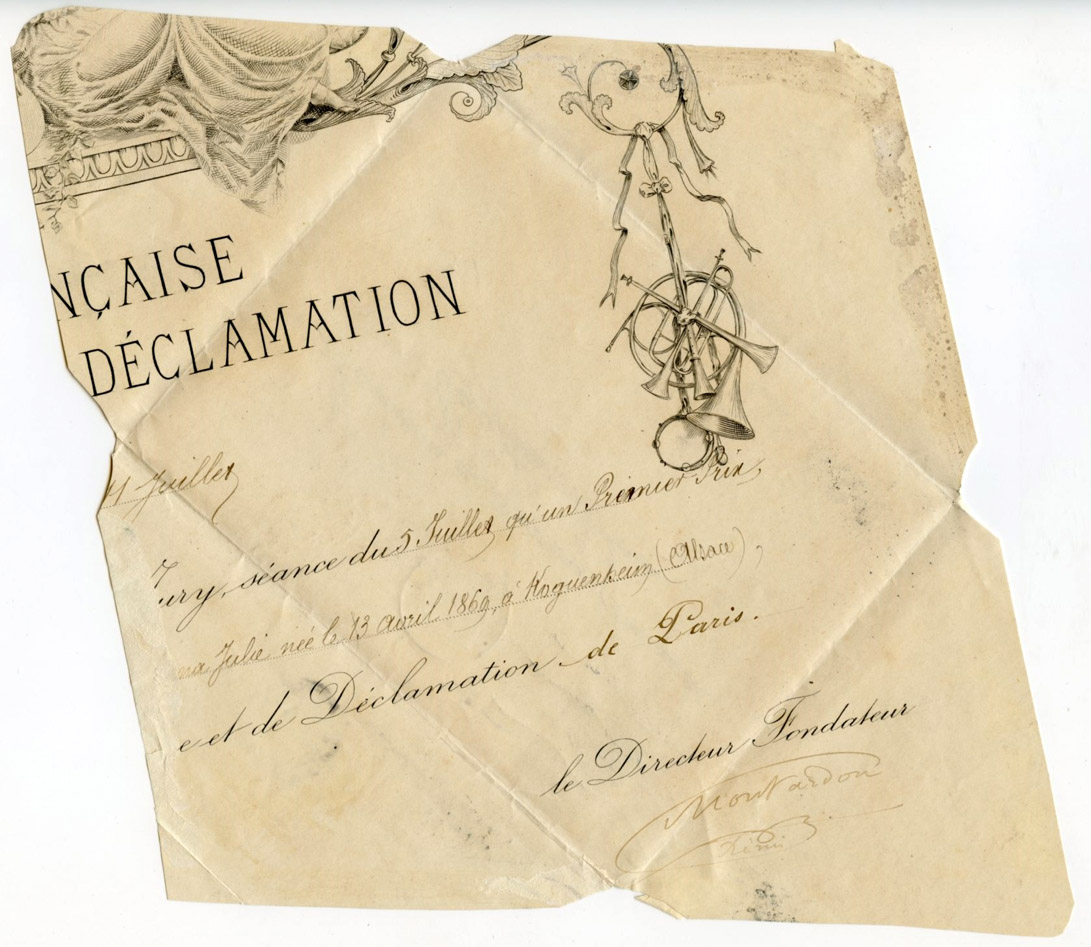 NÇAISE
DÉCLAMATION
Juillet
Jury, séance du 5 Juillet qu'un Premier Prix,
na Julie née le 13 avril 1869, à Koguenheim (Alsace),
e et de Déclamation de Paris.
le Directeur Fondateur